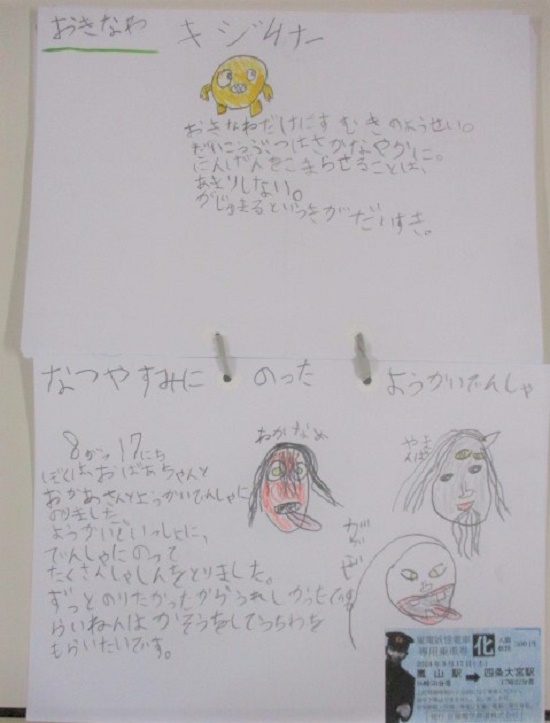 おきなわ
キジムナー
おきなわだけにす むきのようせい。
だいこうぶつはさかなやかに。
にんげんをこまらせることは、
あまりしない。
がじゅまるというきがだいすき。
なつやすみに のった ようかいでんしゃ
8がつ17にち
ぼくは、おばあちゃんと
おかあさんとようかいでんしゃに
のりました。
ようかいといっしょに、
でんしゃにのって
たくさんしゃしんをとりました。
ずっとのりたかったからうれしかったです
らいねんはかそうをしてうちわを
もらいたいです。
あかなめ
やまんば
がごぜ
嵐電妖怪電車
専用乗車券
化
2024年8月17日(土)
嵐山駅
四条大宮駅